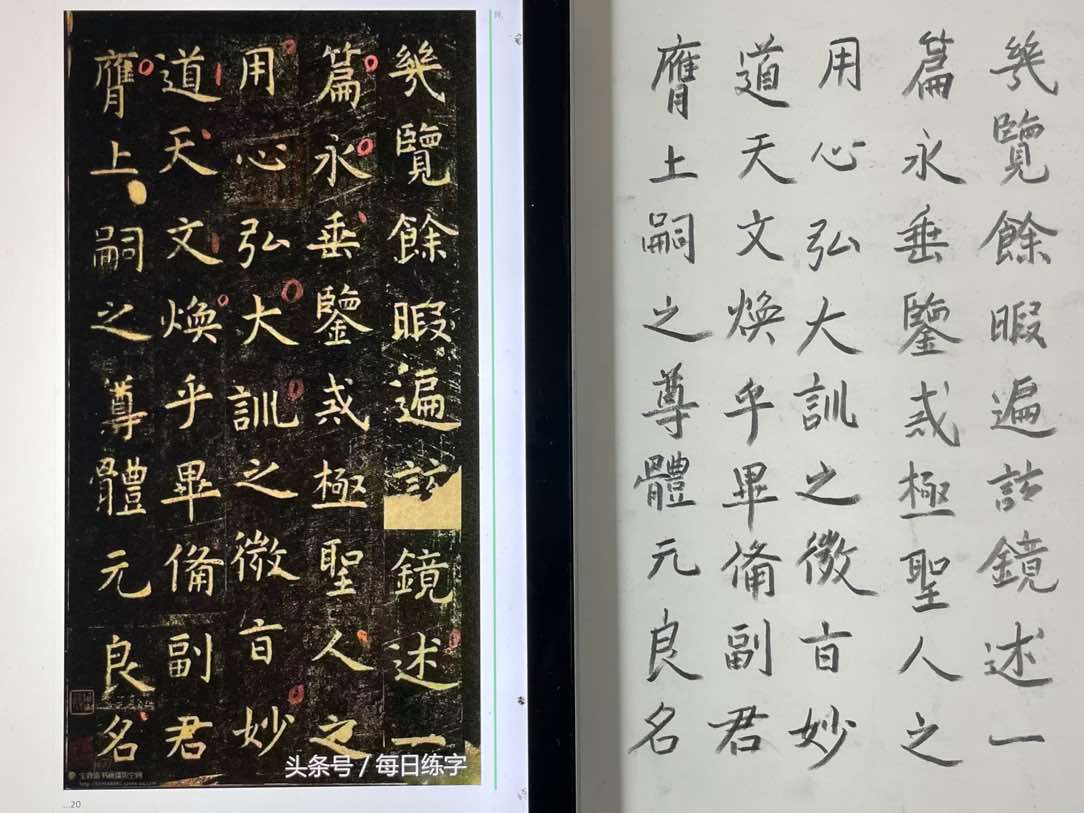 幾覽餘暇遍鏡述一
篇永垂鑒戒極聖人之
用心弘大訓之微旨妙
道天文煥乎畢備副君
膺上嗣之尊體元良名
头条号 / 每日练字
...20
幾覽餘暇遍鏡述一
篇永垂鑒戒極聖人之
用心弘大訓之微旨妙
道天文煥乎畢備副君
膺上嗣之尊體元良名